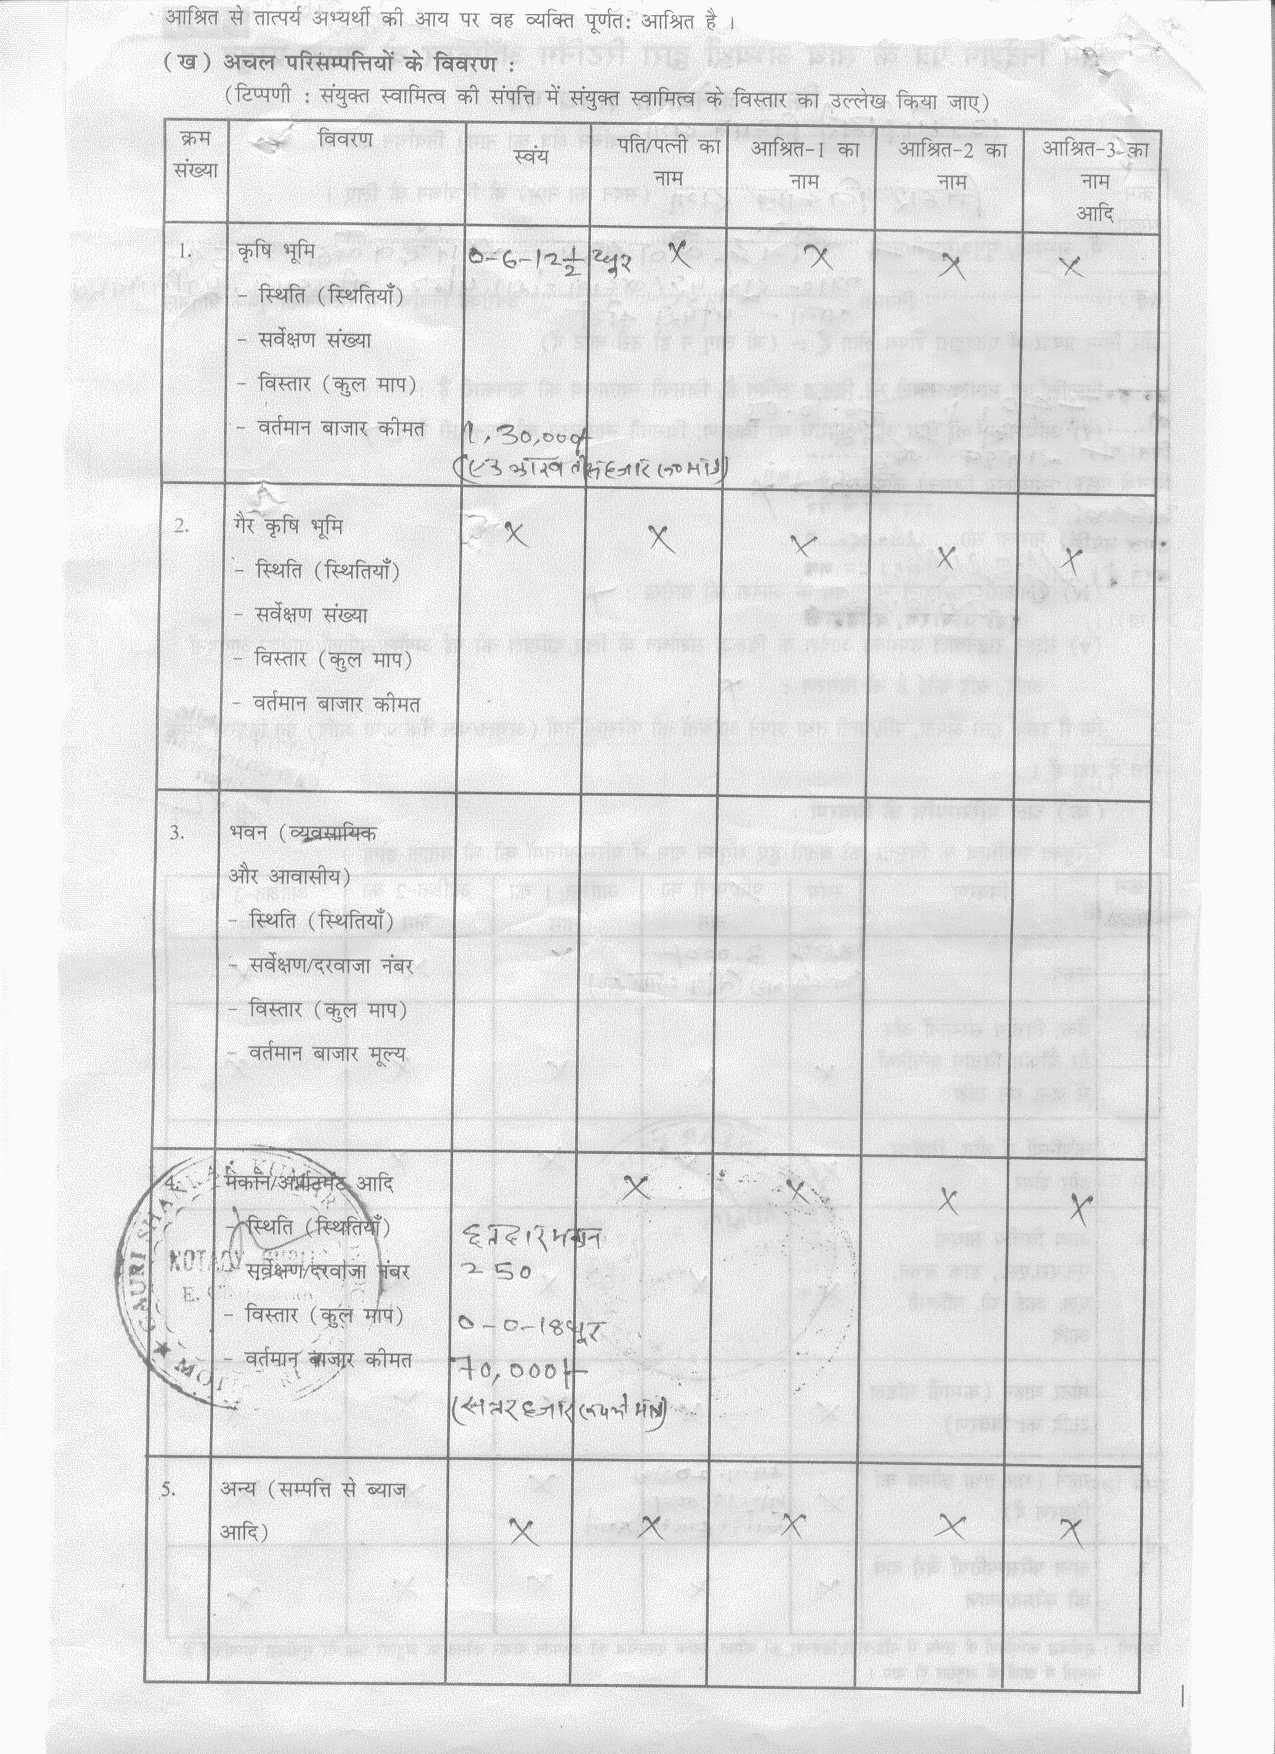 आश्रित से तात्पर्य अभ्यर्थी की आय पर वह व्यक्ति पूर्णत: आश्रित है ।
(ख) अचल परिसम्पत्तियों के विवरण :
(टिप्पणी : संयुक्त स्वामित्व की संपत्ति में संयुक्त स्वामित्व के विस्तार का उल्लेख किया जाए)
क्रम संख्या विवरण स्वंय पति/पत्नी का नाम आश्रित-1 का नाम आश्रित-2 का नाम आश्रित-3 का नाम आदि
1. कृषि भूमि 0-6-12 1/2 धूर X X X X
- स्थिति (स्थितियाँ)
- सर्वेक्षण संख्या
- विस्तार (कुल माप)
- वर्तमान बाजार कीमत 1,30,000/-
2. गैर कृषि भूमि X X X X X
- स्थिति (स्थितियाँ)
- सर्वेक्षण संख्या
- विस्तार (कुल माप)
- वर्तमान बाजार कीमत
3. भवन (व्यवसायिक
और आवासीय)
- स्थिति (स्थितियाँ)
- सर्वेक्षण/दरवाजा नंबर
- विस्तार (कुल माप)
- वर्तमान बाजार मूल्य
4. मकान/अर्पाटमेंट आदि X X X X
- स्थिति (स्थितियाँ) छतदार मकान
- सर्वेक्षण/दरवाजा नंबर 250
- विस्तार (कुल माप) 0-0-18 धूर
- वर्तमान बाजार कीमत 70,000/-
(सत्तर हजार रूपये मात्र)
GAURI SHANKAR KUMAR
NOTARY
5. अन्य (सम्पत्ति से ब्याज
आदि) X X X X X